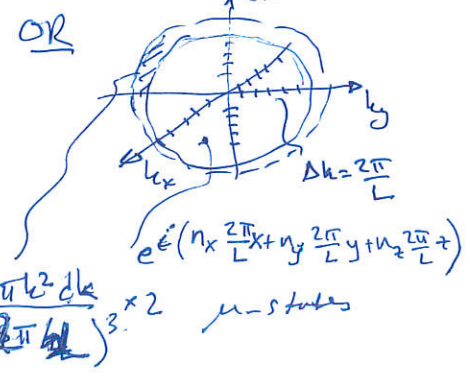 OR
k_y
k_x
Δk = 2π/L
e^i(n_x 2π/L x + n_y 2π/L y + n_z 2π/L z)
πk² dk × 2
μ-states
2π )³